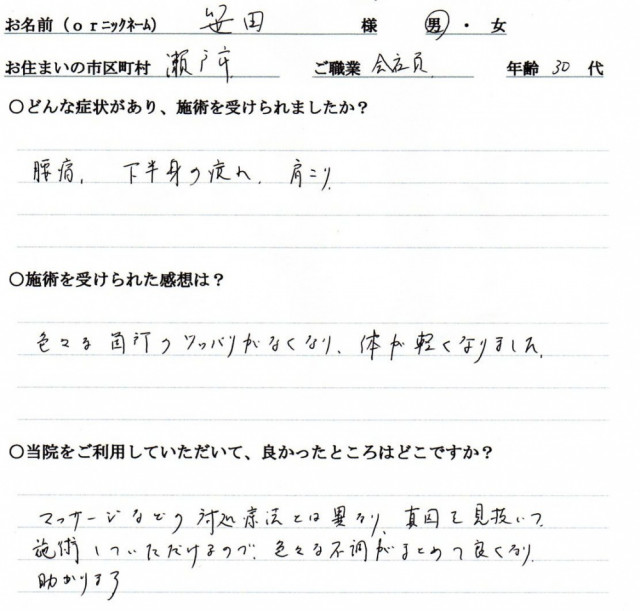 お名前（orニックネーム） 笹田 様 男・女
お住まいの市区町村 瀬戸市 ご職業 会社員 年齢 30 代
○どんな症状があり、施術を受けられましたか？
腰痛、下半身の疲れ、肩こり
○施術を受けられた感想は？
色々な箇所のツッパリがなくなり、体が軽くなりました。
○当院をご利用していただいて、良かったところはどこですか？
マッサージなどの対処療法とは異なり、真因を見抜いて
施術していただけるので、色々な不調がまとめて良くなり、
助かります